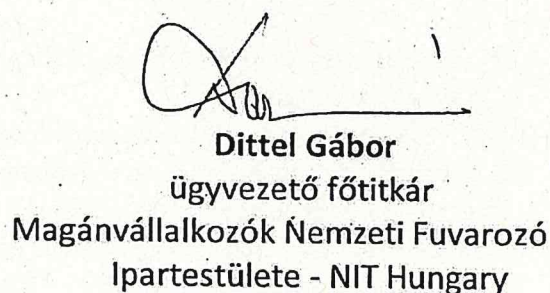 Dittel Gábor
ügyvezető főtitkár
Magánvállalkozók Nemzeti Fuvarozó
Ipartestülete - NIT Hungary